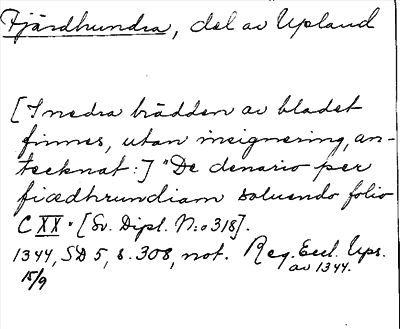 Fjärdhundra, del av Upland
[I nedra brädden av bladet
finnes, utan insignering, an-
tecknat:] "De denario per
fiædhrundiam soluendo folio
CXX" [Sv. Dipl. N:o 318].
1344, SD 5, s. 308, not. Reg. Eccl. Ups.
av 1344.
15/9